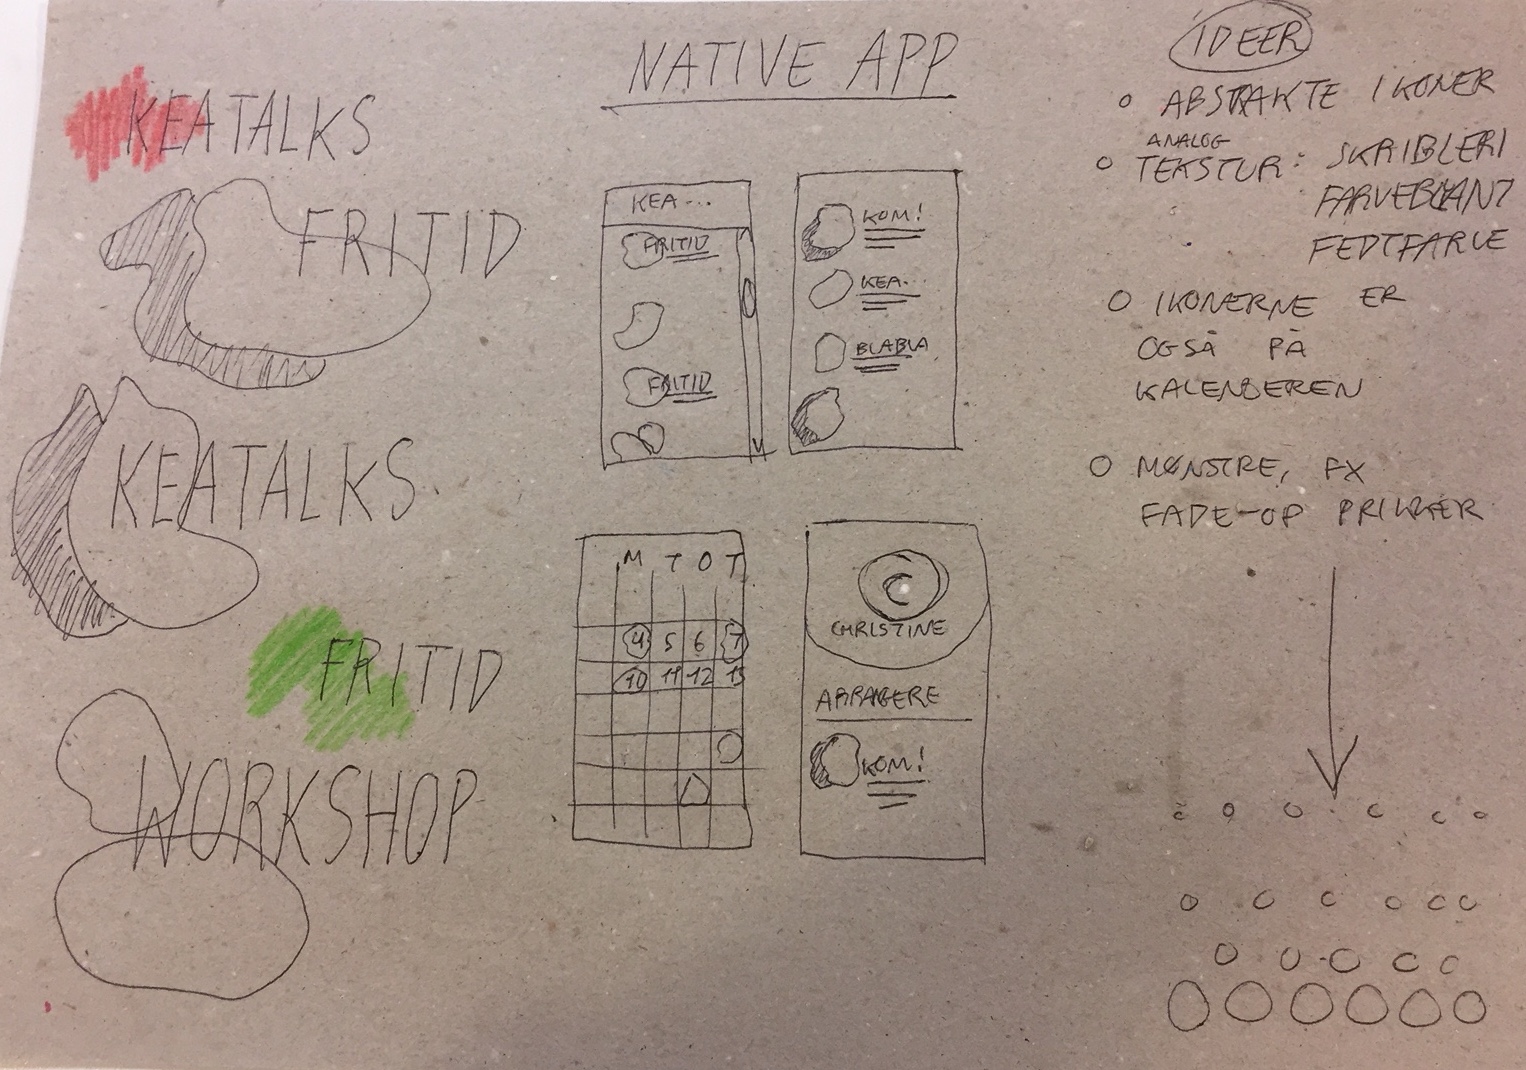 KEATALKS
FRITID
KEATALKS
FRITID
WORKSHOP
NATIVE APP
KEA...
FRITID
FRITID
KOM!
KEA...
BLABLA
M T O T
4 5 6 7
10 11 12 13
C
CHRISTINE
KOM!
IDEER
ABSTRAKTE IKONER
ANALOG
TEKSTUR: SKRIBLERI
FARVEBLYANT
FEDTFARVE
IKONERNE ER
OGSÅ PÅ
KALENDEREN
MØNSTRE, FX
FADE-OP PRIKKER